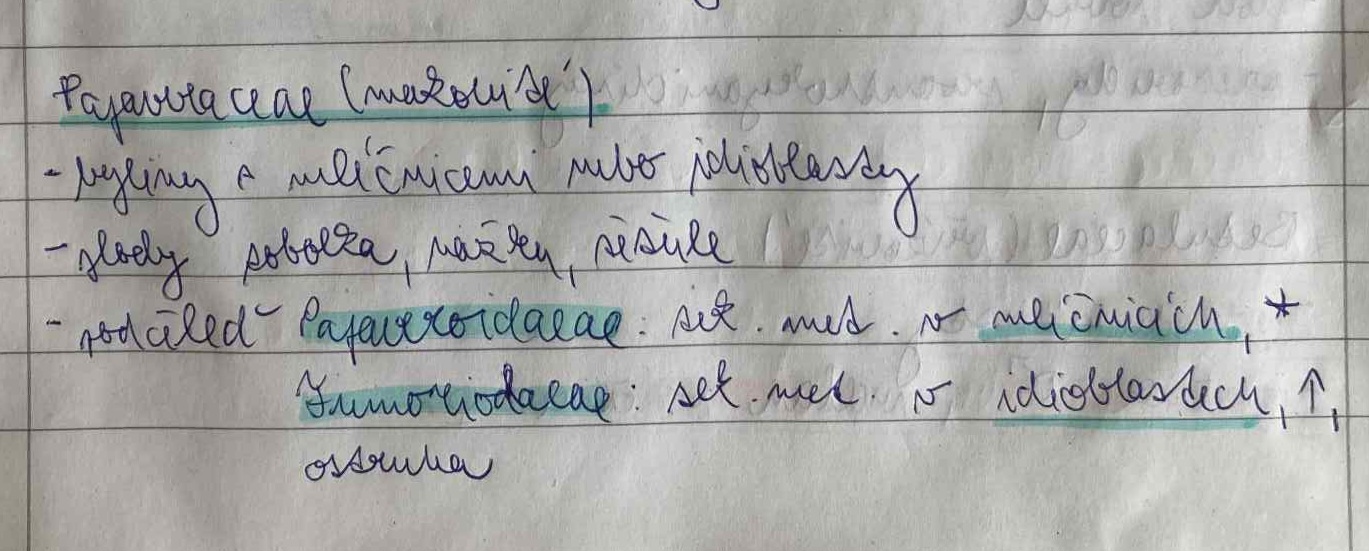 Papaveraceae (makovité)
- byliny s mléčnicemi nebo idioblasty
- plody tobolka, nažky, šešule
- podčeleď Papaveroidaeae: sek. met. v mléčnicích, *
Fumorioidaeae: sek. met. v idioblastech, ↑,
ostruha